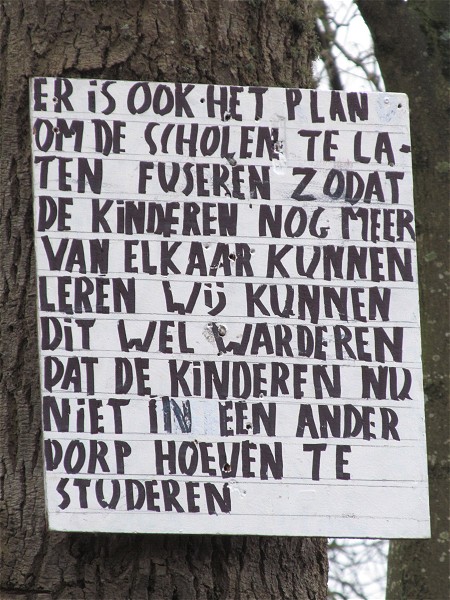 ER iS OOK HET PLAN
OM DE SCHOLEN TE LA-
TEN FUSEREN ZODAT
DE KiNDEREN NOG MEER
VAN ELKAAR KUNNEN
LEREN WiJ KUNNEN
DiT WEL WARDEREN
DAT DE KiNDEREN NU
NiET iN EEN ANDER
DORP HOEVEN TE
STUDEREN